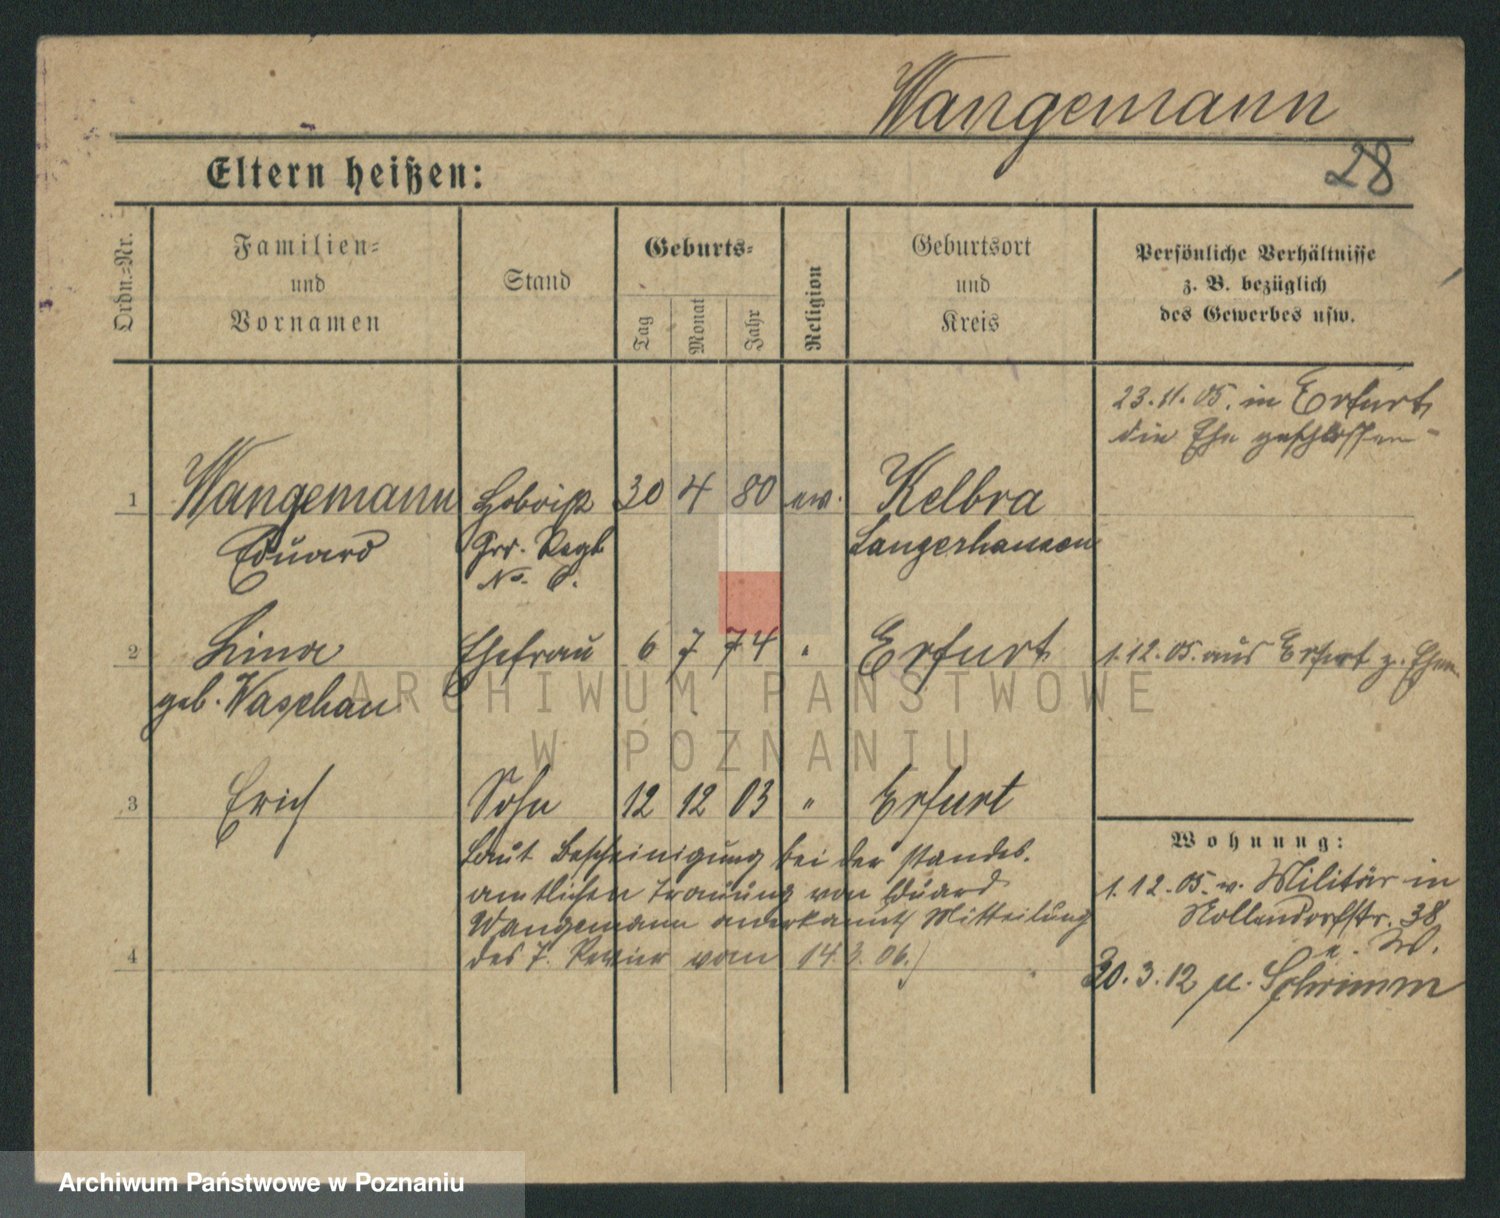 Wangemann
28
Eltern heißen:
Ordn.-Nr.
Familien- und Vornamen
Stand
Geburts-
Tag
Monat
Jahr
Religion
Geburtsort und Kreis
Persönliche Verhältnisse z. B. bezüglich des Gewerbes usw.
23.11.05. in Erfurt
die Ehe geschlossen
1 Wangemann Hoboist 30 4 80 ev. Kelbra
Eduard Gr. Regt. Sangerhausen
No. 6.
2 Lina Ehefrau 6 7 74 " Erfurt 1.12.05. aus Erfurt z. Ehem.
geb. Waschau
3 Erich Sohn 12 12 03 " Erfurt
Laut Bescheinigung bei der standes-
amtlichen Trauung von Eduard
Wangemann anerkannt (Mitteilung
4 des 7. Revier vom 14.3.06.)
Wohnung:
1.12.05. v. Militär in
Nollendorfstr. 38
30.3.12 n. Schrimm
ARCHIWUM PAŃSTWOWE
W POZNANIU
Archiwum Państwowe w Poznaniu